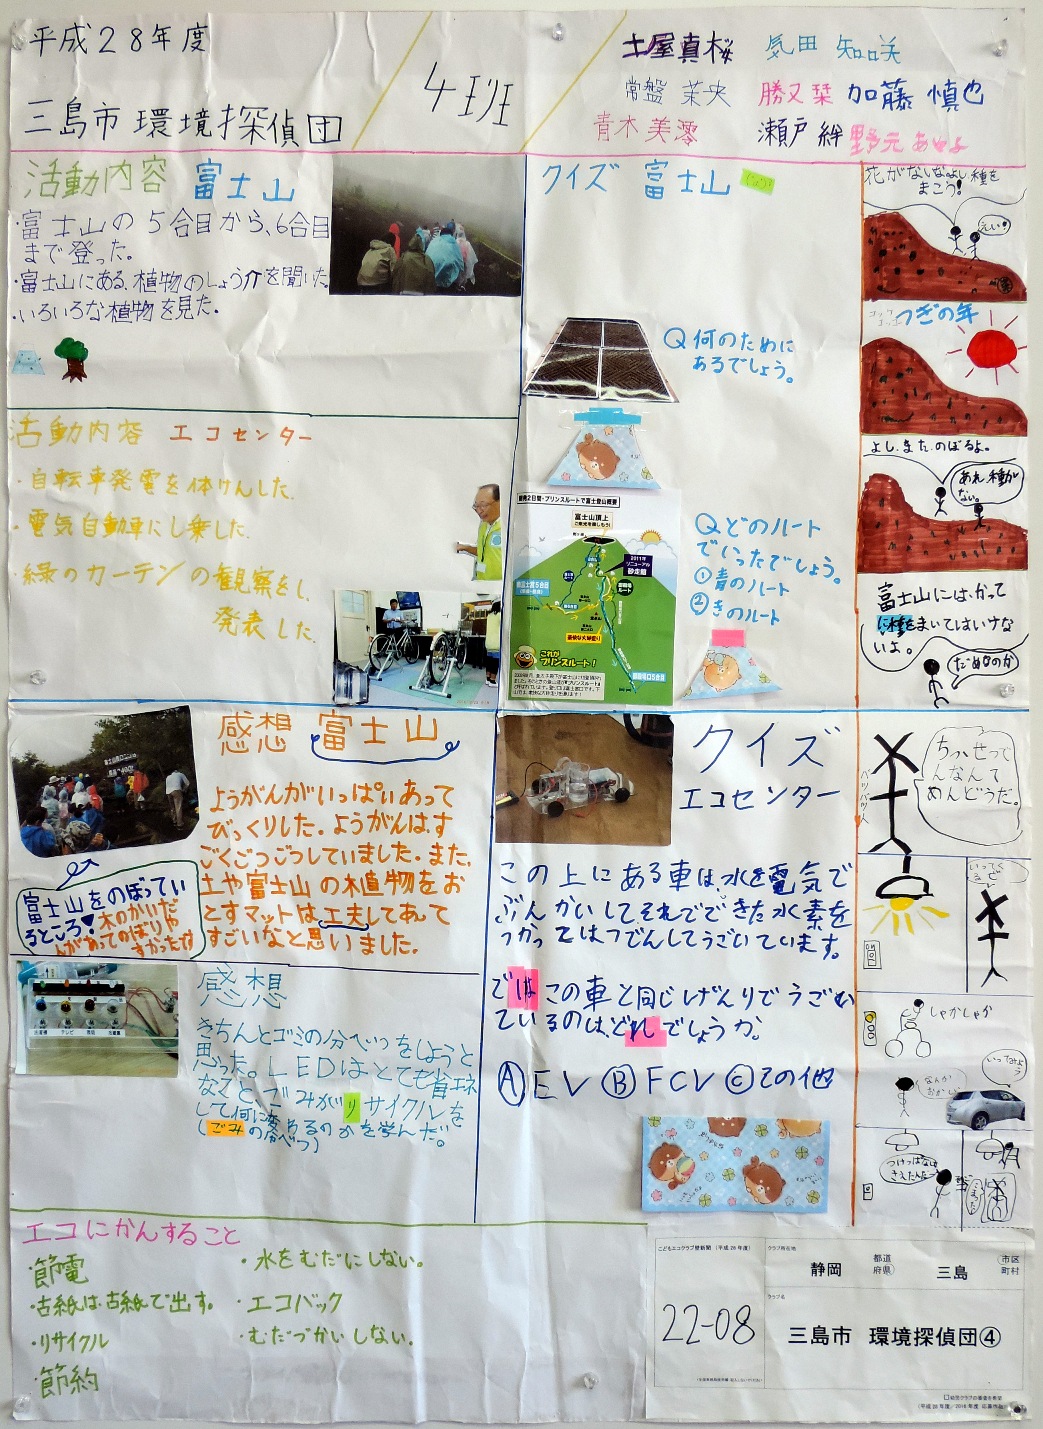 平成28年度
三島市環境探偵団
4班
土屋真桜 気田 知咲
常盤 茉央 勝又栞 加藤 慎也
青木美澪 瀬戸絆 野元
活動内容 富士山
・富士山の5合目から、6合目
まで登った。
・富士山にある、植物のしょう介を聞いた。
・いろいろな植物を見た。
活動内容 エコセンター
・自転車発電を体けんした。
・電気自動車にし乗した。
・緑のカーテンの観察をし、
発表した。
クイズ 富士山
Q 何のために
あるでしょう。
Qどのルート
でいったでしょう。
①青のルート
②きのルート
富士山頂上
2011年
リニューアル
砂走館
御殿場
ルート
これが
プリンスルート!
御殿場口5合目
花がないなよし種を
まこう!
えい!
つぎの年
よし、また、のぼるよ。
あれ、種が
ない。
富士山には、かって
に種をまいてはいけな
いよ。
だめなのか
感想 富士山
ようがんがいっぱいあって
びっくりした。ようがんは、す
ごくごつごつしていました。また、
土や富士山の木植物をお
とすマットは、工夫してあって
すごいなと思いました。
富士山をのぼってい
るところ♥木のかいだ
んがあってのぼりや
すかったです
感想
きちんとゴミの分べつをしようと
思った。LEDはとても省エネ
なことごみがリサイクルを
して何に変わるのかを学んだ。
(ごみの分べつ)
クイズ
エコセンター
この上にある車は、水を電気で
ぶんかいしてそれでできた水素を
つかってはつでんしてうごいています。
ではこの車と同じげんりでうごい
ているのは、どれでしょうか。
Ⓐ EV Ⓑ FCV Ⓒ その他
ちっ、せってい
んなんて
めんどうだ。
いってくるぜ
しゃかしゃか
なんか
おかしい
つけっぱなし
エコにかんすること
・節電
・古紙は古紙で出す。
・リサイクル
・節約
・水をむだにしない。
・エコバック
・むだづかいしない。
こどもエコクラブ壁新聞(平成28年度)
22-08
クラブ所在地
静岡 都道府県 三島 市区町村
クラブ名
三島市 環境探偵団④